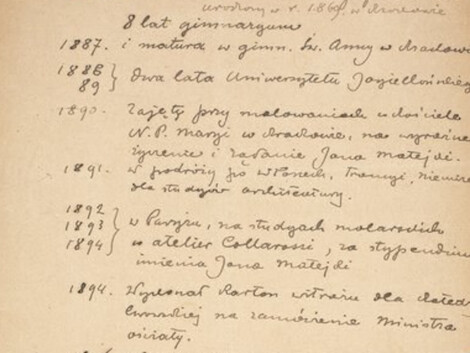 urodzony w r. 1869. w Krakowie
8 lat gimnazyum
1887. i matura w gimn. Św. Anny w Krakowie
1888 } dwa lata Uniwersytetu Jagiellońskiego
89
1890. Zajęty przy malowaniach w kościele
N. P. Maryi w Krakowie, na wyraźne
życzenie i żądanie Jana Matejki.
1891. w podróży po Włoszech, Francyi, Niemcze
dla studyów architektury.
1892
1893 } w Paryżu, na studyach malarskich
1894 w atelier Collarossi, za stypendium
imienia Jana Matejki
1894. Wykonał karton witrażu dla katedry
lwowskiej na zamówienie Ministra
oświaty.